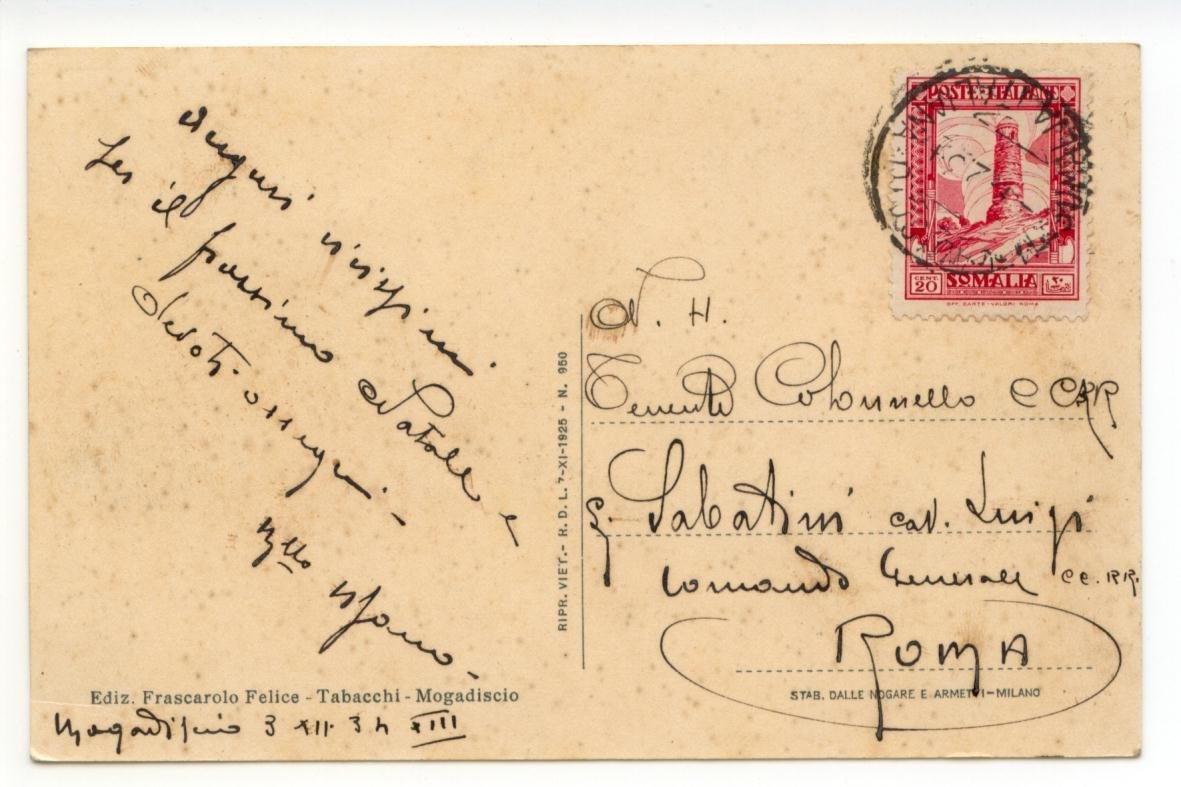 Auguri vivissimi
per il prossimo Natale e
Devoti ossequi -
POSTE ITALIANE
CENT. 20
SOMALIA
٢٠
OFF. CARTE-VALORI ROMA
N. H.
Tenente Colonnello CCRR
Sabatini cav. Luigi
Comando Generale CC.RR.
ROMA
RIPR. VIET. - R. D. L. 7-XI-1925 - N. 950
Ediz. Frascarolo Felice - Tabacchi - Mogadiscio
STAB. DALLE NOGARE E ARMETTI - MILANO
Mogadiscio 3 XII 34 XIII